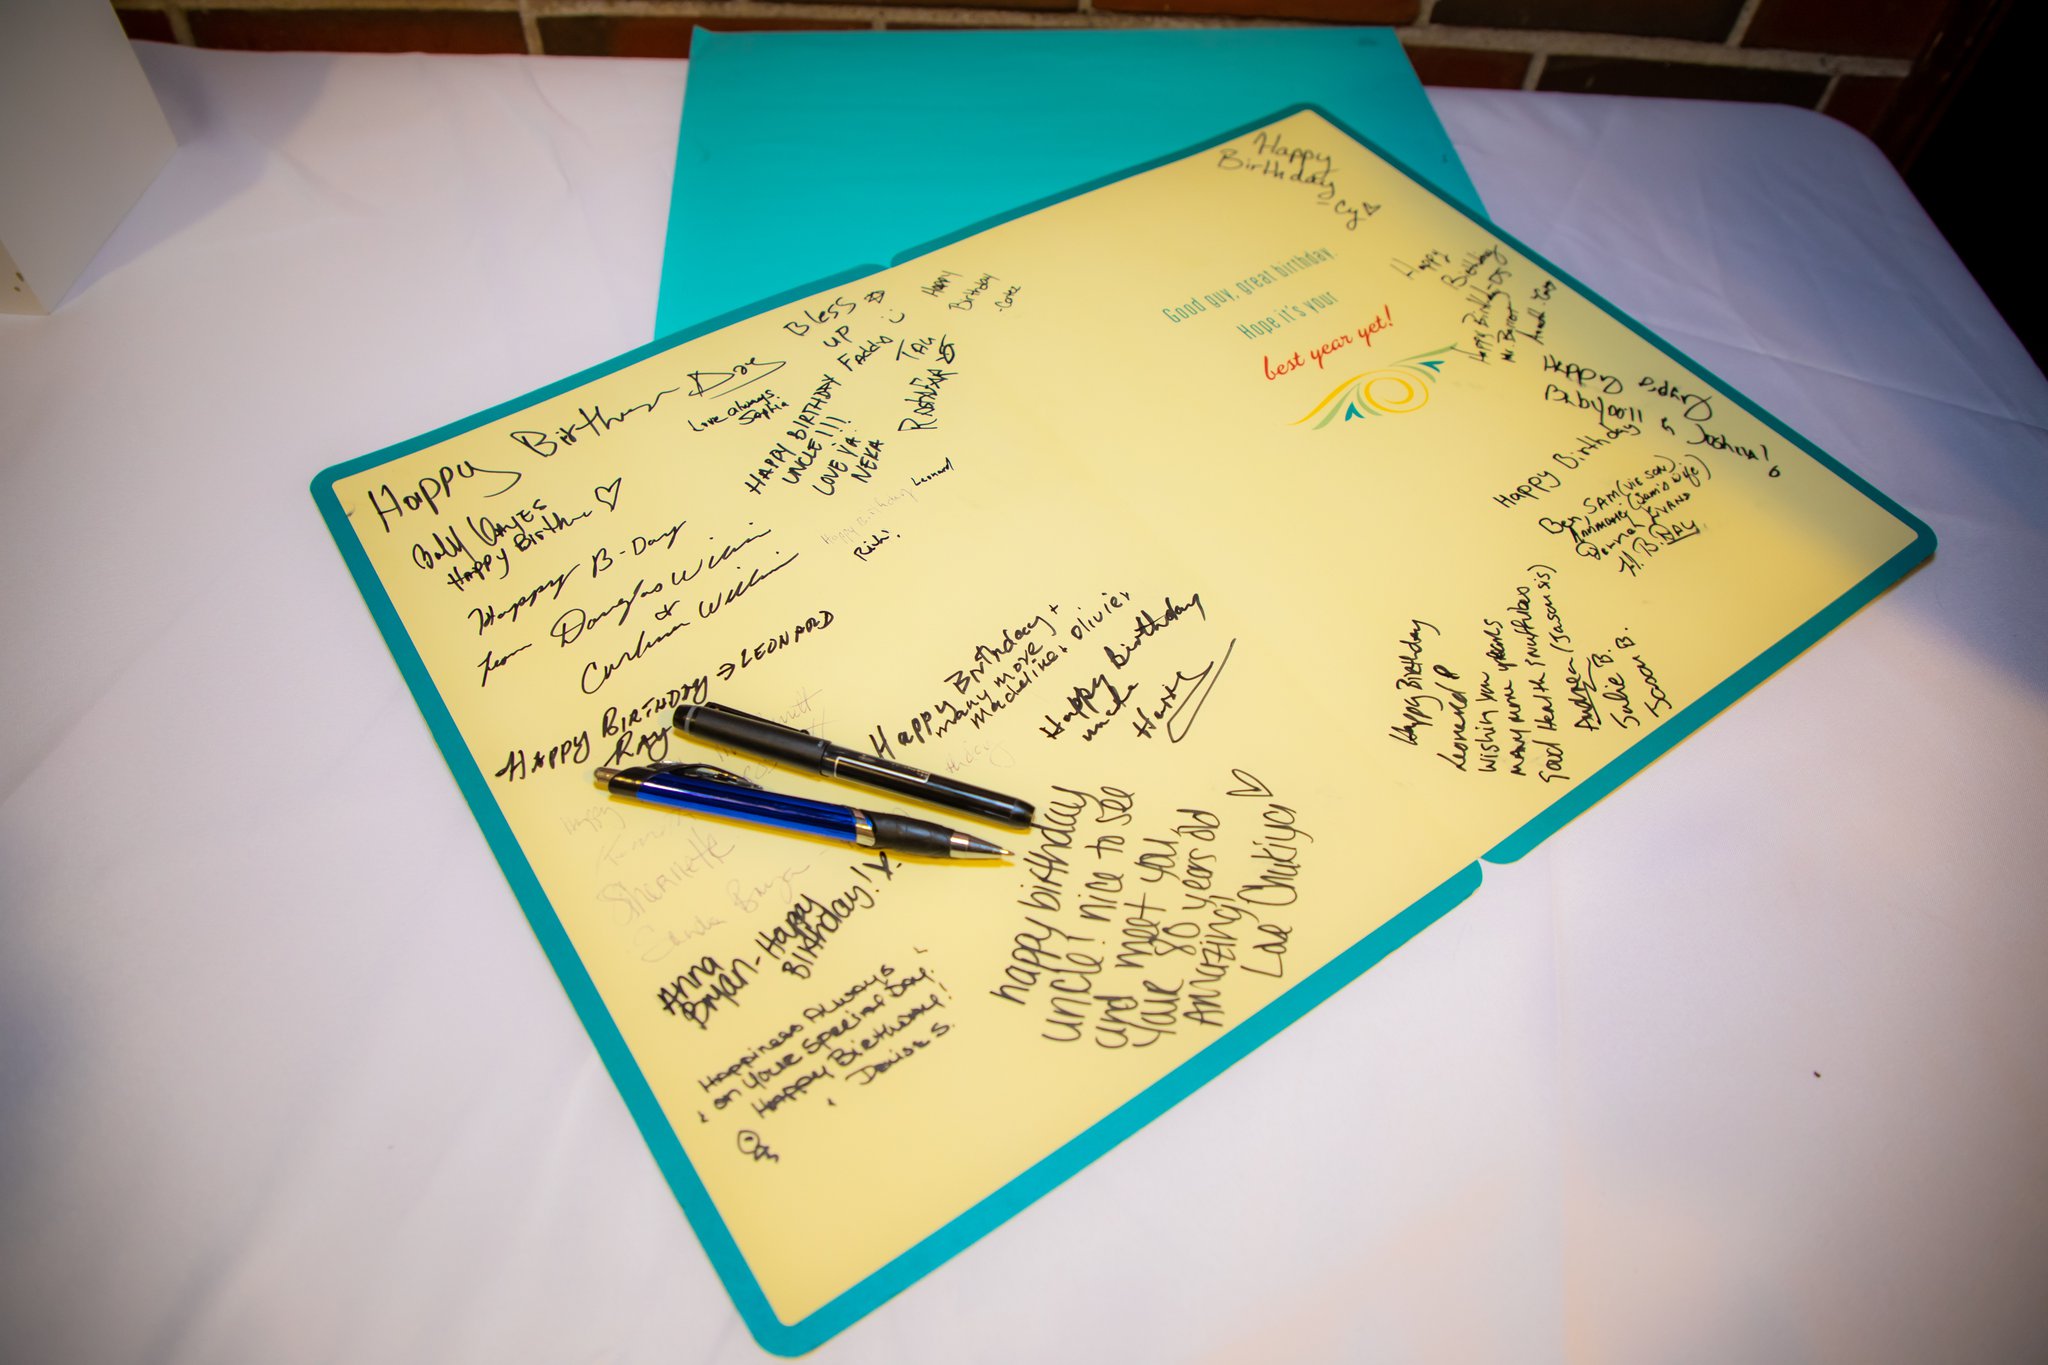 Happy Birthday
Love always
Sophia
Happy Birth
Happy B-Day
from Douglas
&
HAPPY BIRTHDAY → LEONARD
RAY
Bless
UP
Faddo
TALL
Happy
Birthday
HAPPY BIRTHDAY
UNCLE!!!
LOVE YA
NEKA
Happy Birthday Leonard
Happy
Shernette
Anna
Bryan - Happy
Birthday!
Happiness Always
on your special Day.
Happy Birthday!
Denise S.
Happy Birthday +
many more
Madeline + Olivier
Happy birthday
uncle
happy birthday
uncle! nice to see
and meet you
Your 80 years old
AMAZING!
Love Chukiya
Happy
Birthday
- Cy
Good guy, great birthday.
Hope it's your
best year yet!
Happy
Birthday
Happy Birthday
Mr Barrett
Happy Bday
Babydoll & Joshua!
Happy Birthday
Ben, SAM (VIE SON)
Annmarie (Sam's Wife)
H. B. DAY
Happy Birthday
Leonard
Wishing you
many more years
Good Health &
Andrea (Jason sis)
Julie B.
Jason B.